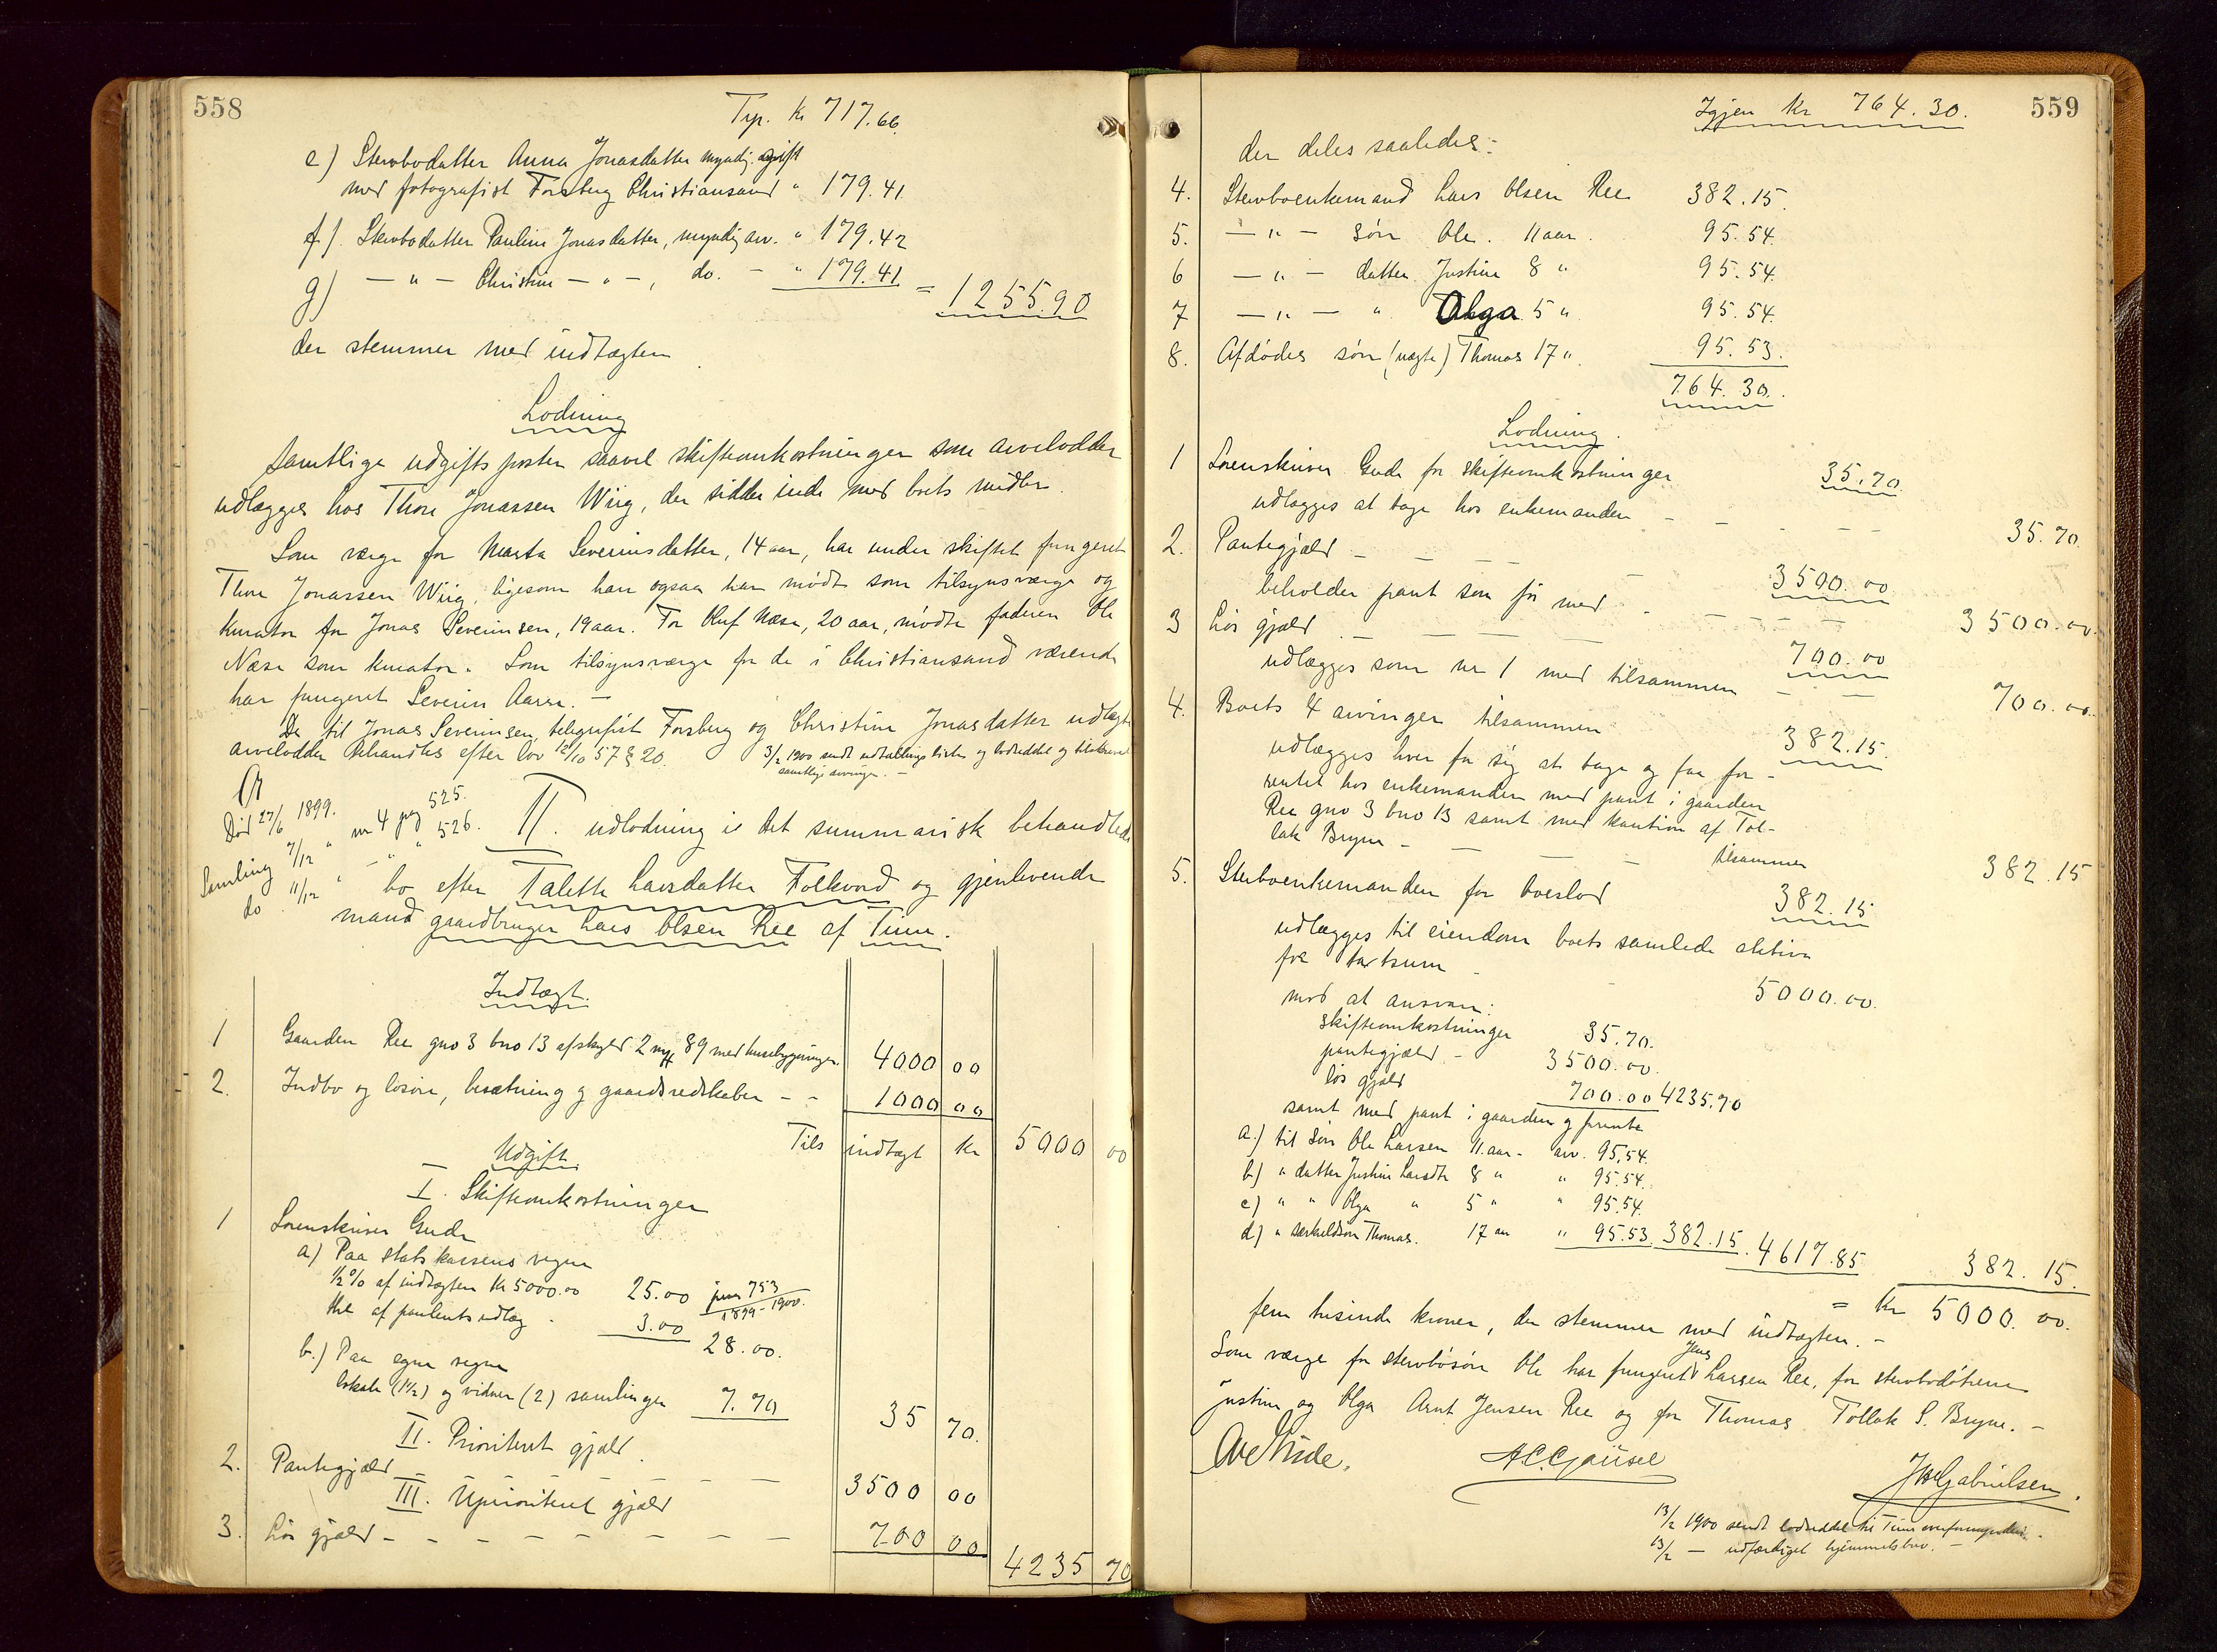 558
Trp. Kr 717.66.
e) Stervbodatter Anna Jonasdatter myndig. gift
med fotografist Forsberg Christiansand " 179.41.
f). Stervbodatter Pauline Jonasdatter, myndig arv. " 179.42
g) — " — Christine — " —, do. — " 179.41 = 1255.90
der stemmer med indtægten
Lodning
Samtlige udgiftsposter saavel skifteomkostninger som arvelodder
udlægges hos Thore Jonassen Wiig, der sidder inde med boets midler.
Som værge for Marta Severinsdatter, 14 aar, har under skiftet fungeret
Thore Jonassen Wiig, ligesom han ogsaa har mødt som tilsynsværge og
kurator for Jonas Severinsen, 19 aar. For Næse, 20 aar, mødte faderen Ole
Næse som kurator. Som tilsynsværge for de i Christiansand værende
har fungeret Severin Aarre. —
De til Jonas Severinsen, telegrafist Forsberg og Christine Jonasdatter udlagte
arvelodder behandles efter lov 12/10 57 § 20. 3/2 1900 sendt udtællingslister og lodseddel og tilskrevet
samtlige arvinger. —
Død 27/6 1899. nr 4 pag 525.
Samling 7/12 " — " " 526.
do 11/12 "
II. udlodning i det summarisk behandlede
bo efter Talette Larsdatter Folkvord og gjenlevende
mand gaardbruger Lars Olsen Ree af Time.
Indtægt.
1 Gaarden Ree gno 3 bno 13 afskyld 2 mk 89 med husebygninger. 4000 00
2. Indbo og løsøre, besætning og gaardsredskaber - - 1000 00
Tils indtægt kr 5000 00
Udgift
I. Skifteomkostninger
1 Sorenskriver Gude
a) Paa statskassens vegne
1/2 % af indtægten Kr 5000.00 25.00 jour 753 / 1899-1900.
the af paulents udlæg . 3.00 28.00.
b.) Paa egne vegne
lokale (1 1/2) og vidner (2) samlinger 7.70 35 70.
II. Prioritert gjæld.
2. Pantegjæld — — — — — 3500 00
III. Uprioritert gjæld
3. Løs gjæld - - - - - - - 700 00 4235 70
559
Igjen Kr 764.30.
der deles saaledes:
4. Stervboenkemand Lars Olsen Ree 382.15.
5. — " — søn Ole. 11 aar. 95.54.
6 — " — datter Justine 8 " 95.54.
7 — " — " Olga 5 " 95.54.
8. Afdødes søn (uægte) Thomas 17 " 95.53.
764.30.
Lodning.
1 Sorenskriver Gude for skifteomkostninger 35.70.
udlægges at tage hos enkemanden - - - - 35.70.
2. Pantegjæld - - - - 3500.00
beholder pant som før med - - - - 3500.00.
3 Løs gjæld. - - - - 700.00
udlægges som nr 1 med tilsammen - - 700.00.
4. Boets 4 arvinger tilsammen 382.15.
udlægges hver for sig at tage og faa for-
rentet hos enkemanden med pant i gaarden
Ree gno 3 bno 13 samt med kaution af Tol-
lak Bryne - - - - tilsammen 382.15
5. Stervboenkemanden for boeslod 382.15
udlægges til eiendom boets samlede aktiva
for taxtsum - - 5000.00.
mod at ansvare:
skifteomkostninger 35.70.
pantegjæld - 3500.00.
løs gjæld 700.00 4235.70
samt med pant i gaarden og forrente
a.) til søn Ole Larsen 11 aar - arv. 95.54.
b) " datter Justine Larsdtr 8 " " 95.54.
c) " " Olga " 5 " " 95.54.
d) " særkuldsøn Thomas. 17 aar " 95.53. 382.15. 4617.85 382.15.
= Kr 5000.00.
fem tusinde kroner, der stemmer med indtægten. -
Som værge for stervbosøn Ole har fungeret Jens Larsen Ree, for stervbodøtrene
Justine og Olga Arnt Jensen Ree og for Thomas Tollak S. Bryne. —
Ove Gude. A. C. Gausel J W Gabrielsen.
13/2 1900 sendt lodseddel til Time overformynderi. -
13/2 — udfærdiget hjemmelsbrev. —